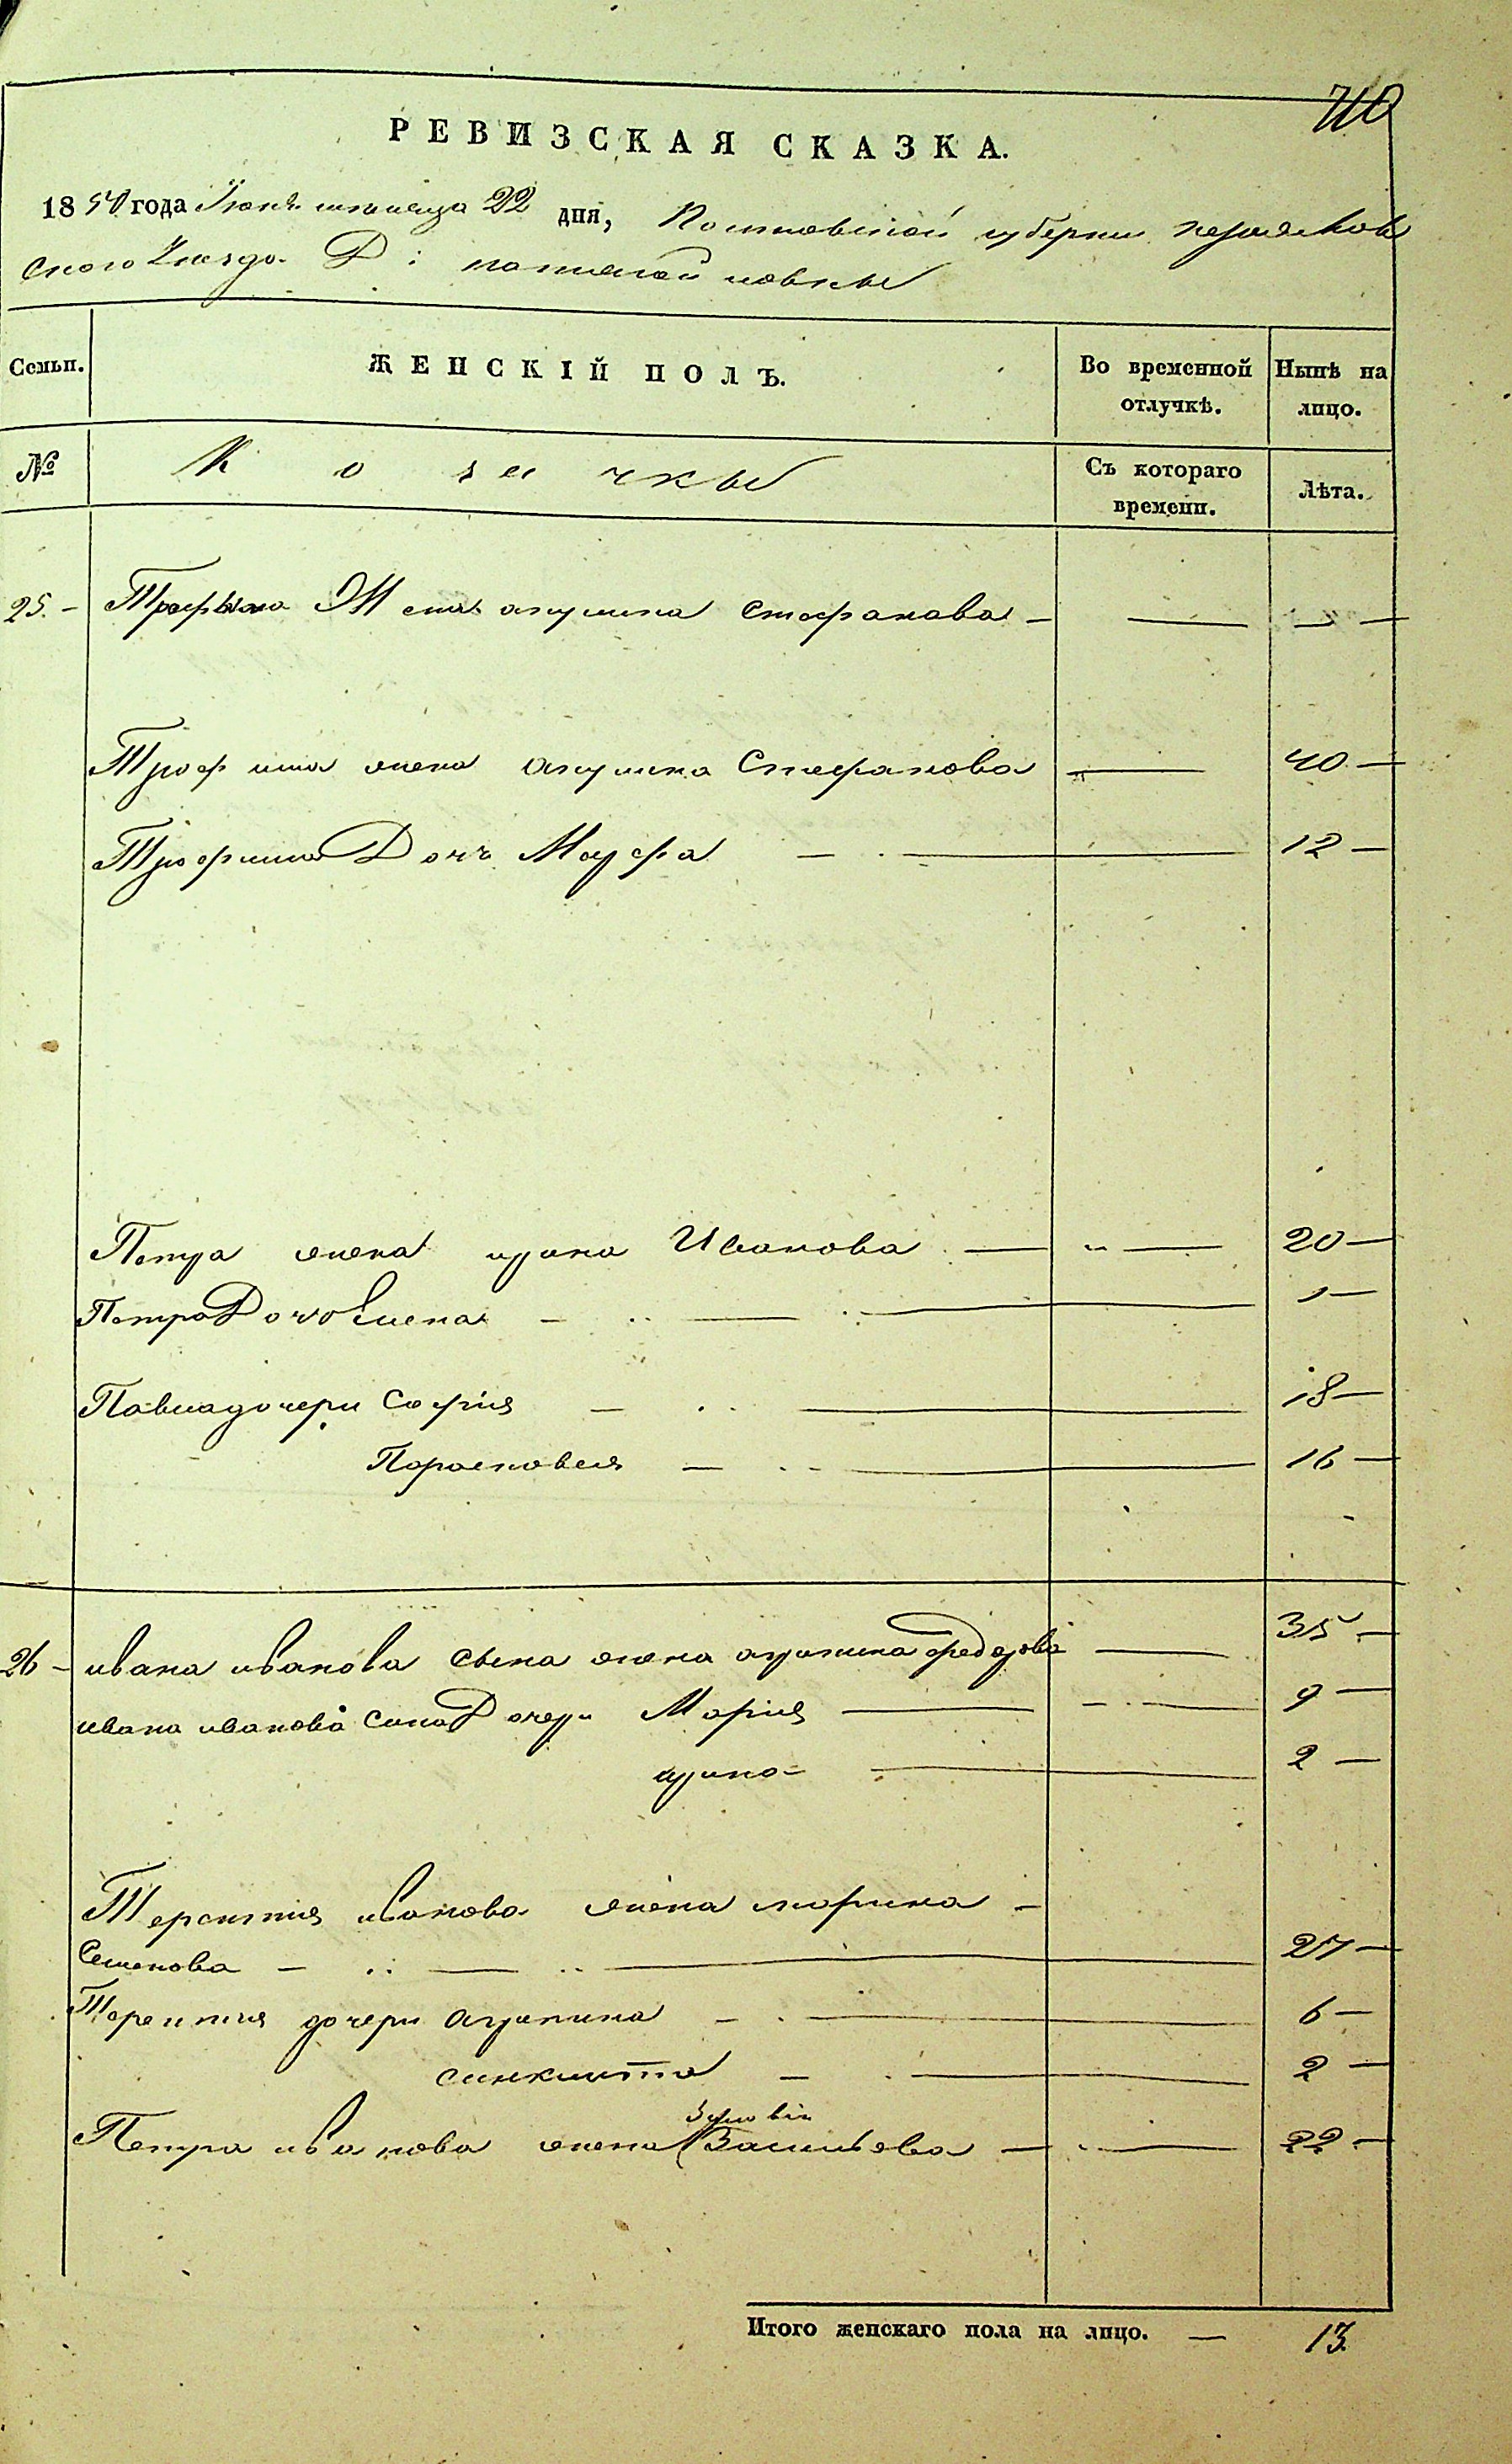 710
РЕВИЗСКАЯ СКАЗКА.
1850 года Іюня месяца 22 дня, Полтавской губернии
ского Уезда Д:
Семьи. ЖЕНСКІЙ ПОЛЪ. Во временной отлучкѣ. Нынѣ на лицо.
№ Козачки Съ котораго времени. Лѣта.
25. – Трофима Жена акулина Стефанова – — — —
Трофима жена акулина Стефанова — 40 —
Трофима Дочь Марфа — — 12 —
Петра жена ирина Иванова — — 20 —
Петра Дочь Елена — — 1 —
Павла дочери София — — 18 —
Парасковея — — 16 —
26 – ивана иванова сына жена агрипина федорова — 35 —
ивана иванова сина Дочери Мария — — 9 —
ирина — 2 —
Терентия иванова жена марина –
Семенова — — 27 —
Терентия дочери агрипина — — 6 —
синклита — — 2 —
Зиновія
Петра иванова жена Васильева — — 22 —
Итого женскаго пола на лицо. — 13.